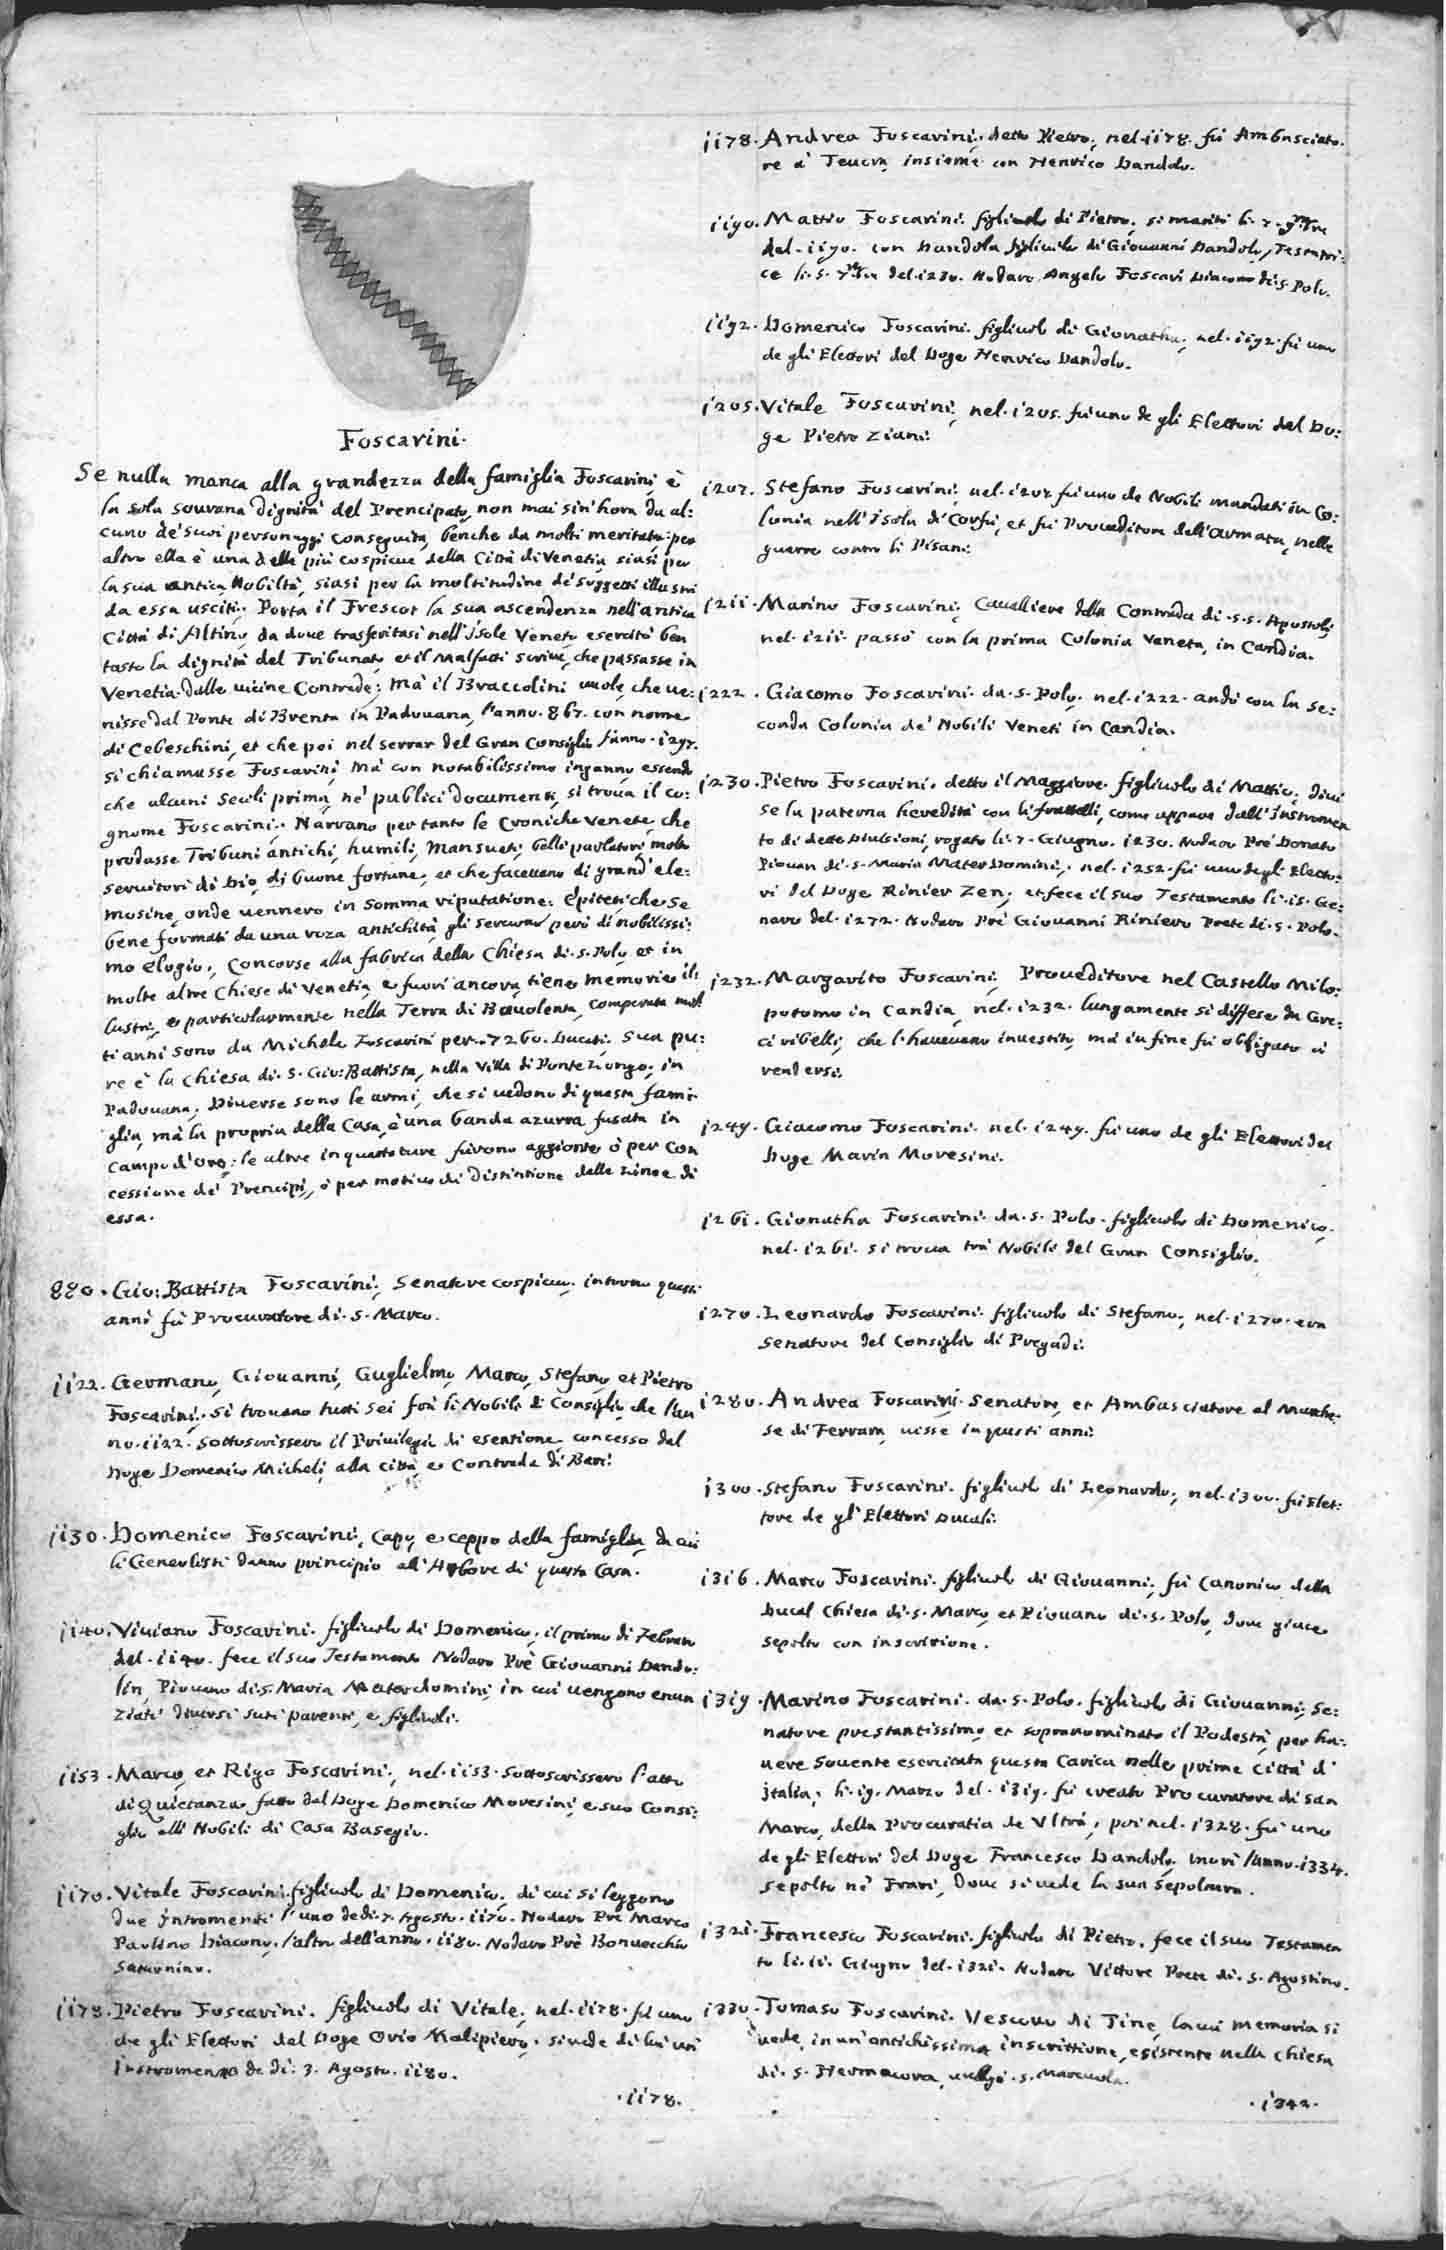 Foscarini.
Se nulla manca alla grandezza della famiglia Foscarini, è
la sola souvana dignità del Prencipato, non mai sin'hora da al:
cuno de' suoi personaggi conseguita, benche da molti meritata: per
altro ella è una delle più cospicue della Città di Venetia, siasi per
la sua antica Nobiltà, siasi per la moltitudine de' suggetti illustri
da essa usciti. Porta il Frescot la sua ascendenza nell'antica
Città di Altino, da doue trasferitasi nell'isole Venete, esercitò ben
tosto la dignità del Tribunato, et il Malfatti scriue, che passasse in
Venetia dalle uicine Contrade; mà il Braccolini uuole, che ue:
nisse dal Ponte di Brenta in Padouana, l'anno. 867. con nome
di Cebeschini, et che poi nel serrar del Gran Consiglio l'anno. 1297.
si chiamasse Foscarini, mà con notabilissimo inganno, essendo
che alcuni secoli prima, nè publici documenti, si troua il co:
gnome Foscarini. Narrano per tanto le Croniche Venete, che
prodasse Tribuni antichi, humili, mansueti, belli parlatori, molto
seruitori di Dio, di buone fortune, et che faceuano di grand' ele:
mosine, onde uennero in somma riputatione: Epiteti che se
bene formati da una roza antichità, gli seruono però di nobilissi:
mo elogio. Concorse alla fabrica della Chiesa di. S. Polo, et in
molte altre Chiese di Venetia, e fuori ancora, tiene memorie il:
lustri, e particolarmente nella Terra di Bauolenta, comperata mol
ti anni sono da Michele Foscarini per. 7260. Ducati. Sua pu:
re è la Chiesa di. S. Gio: Battista, nella Villa di Pontelongo, in
Padouana. Diuerse sono le armi, che si uedono di questa fami:
glia, mà la propria della Casa, è una banda azurra fusata in
campo d'oro; le altre inquartature furono aggionte, ò per con
cessione de' Prencipi, ò per motiuo di distintione delle linee di
essa.
880. Gio: Battista Foscarini, Senatore cospicuo, intorno questi
anni fù Procuratore di. S. Marco.
1122. Germano, Giouanni, Guglielmo, Marco, Stefano, et Pietro
Foscarini. Si trouano tutti sei frà li Nobili di Consiglio, che l'an
no. 1122. sottoscrissero il Priuilegio di esentione, concesso dal
Doge Domenico Micheli, alla città, e Contrada di Bari.
1130. Domenico Foscarini, Capo, e ceppo della famiglia, da cui
li Genealisti danno principio all'Arbore di questa Casa.
1140. Viuiano Foscarini. figliuolo di Domenico, il primo di Febraro
del. 1140. fece il suo Testamento Nodaro Prè Giouanni Dando:
lin, Piouano di. S. Maria Mater domini, in cui uengono enun
ziati diuersi suoi parenti, e figliuoli.
1153. Marco, et Rigo Foscarini, nel. 1153. sottoscrissero l'atto
di Quietanza fatto dal Doge Domenico Moresini, e suo Consi:
glio alli Nobili di Casa Basegio.
1170. Vitale Foscarini figliuolo di Domenico, di cui si leggono
due Intromenti l'uno dedi. 7. Agosto. 1170. Nodaro Prè Marco
Paulino Diacono, l'altro dell'anno. 1180. Nodaro Prè Bonuecchio
Saturnino.
1178. Pietro Foscarini. figliuolo di Vitale, nel. 1178. fù uno
de gli Elettori del Doge Orio Malipiero. si uede di lui un'
Instromento de di. 3. Agosto. 1180.
.1178.
1178. Andrea Foscarini. detto Pietro, nel. 1178. fù Ambasciato:
re à insieme con Henrico Dandolo.
1190. Mattio Foscarini. figliuolo di Pietro, si maritò li. 7.
del. 1190. con Dandola figliuola di Giouanni Dandolo, Testatri:
ce li. 5. del. 1230. Nodaro Angelo Foscari Diacono di. S. Polo.
1192. Domenico Foscarini. figliuolo di Gionatha, nel. 1192. fù uno
de gli Elettori del Doge Henrico Dandolo.
1205. Vitale Foscarini, nel. 1205. fù uno de gli Elettori del Do:
ge Pietro Ziani.
1207. Stefano Foscarini, nel. 1207. fù uno de Nobili mandati in Co:
lonia nell'Isola di Corfù, et fù Proueditore dell'armata, nelle
guerre contro li Pisani.
1211. Marino Foscarini, Caualliere della Contrada di. S.S. Apostoli,
nel. 1211. passò con la prima Colonia Veneta, in Candia.
1222. Giacomo Foscarini. da. S. Polo. nel. 1222. andò con la se:
conda Colonia de' Nobili Veneti in Candia.
1230. Pietro Foscarini. detto il Maggiore. figliuolo di Mattio, diui
se la paterna heredità con li fratelli, come appare dall'Instromen
to di dette Diuisioni, rogato li. 7. Giugno. 1230. Nodaro Prè Donato
Piouan di. S. Maria Mater Domini, nel. 1252. fù uno degli Eletto:
ri del Doge Rinier Zen, et fece il suo Testamento li. 15. Ge:
naro del. 1272. Nodaro Prè Giouanni Riniero Prete di. S. Polo.
1232. Margarito Foscarini, Proueditore nel Castello Milo:
potamo in Candia, nel. 1232. lungamente si diffese da Gre:
ci ribelli, che l'haueuano inuestito, mà in fine fù obligato à
rendersi.
1249. Giacomo Foscarini. nel. 1249. fù uno de gli Elettori del
Doge Marin Moresini.
1261. Gionatha Foscarini. da. S. Polo. figliuolo di Domenico,
nel. 1261. si troua trà Nobili del Gran Consiglio.
1270. Leonardo Foscarini. figliuolo di Stefano, nel. 1270. era
Senatore del Consiglio di Pregadi.
1280. Andrea Foscarini. Senatore, et Ambasciatore al Marche:
se di Ferrara, uisse in questi anni.
1300. Stefano Foscarini. figliuolo di Leonardo, nel. 1300. fù Elet:
tore de gl'Elettori Ducali.
1316. Marco Foscarini. figliuolo di Giouanni, fù Canonico della
Ducal Chiesa di. S. Marco, et Piouano di. S. Polo, doue giace
sepolto con inscritione.
1319. Marino Foscarini. da. S. Polo. figliuolo di Giouanni, Se:
natore prestantissimo, et sopranominato il Podestà, per ha:
uere souente esercitata questa Carica nelle prime città d'
Italia, li. 19. Marzo del. 1319. fù creato Procuratore di San
Marco, della Procuratia de Vltrà; poi nel. 1328. fù uno
de gli Elettori del Doge Francesco Dandolo, morì l'anno. 1334.
sepolto nè Frari, doue si uede la sua sepoltura.
1321. Francesco Foscarini. figliuolo di Pietro. fece il suo Testamen
to li. 11. Giugno del. 1321. Nodaro Vittore Prete di. S. Agostino.
1330. Tomaso Foscarini. Vescouo di Tine, la cui memoria si
uede, in un'antichissima inscrittione, esistente nella Chiesa
di. S. Hermacora, uulgò. S. Marcuola.
.1342.